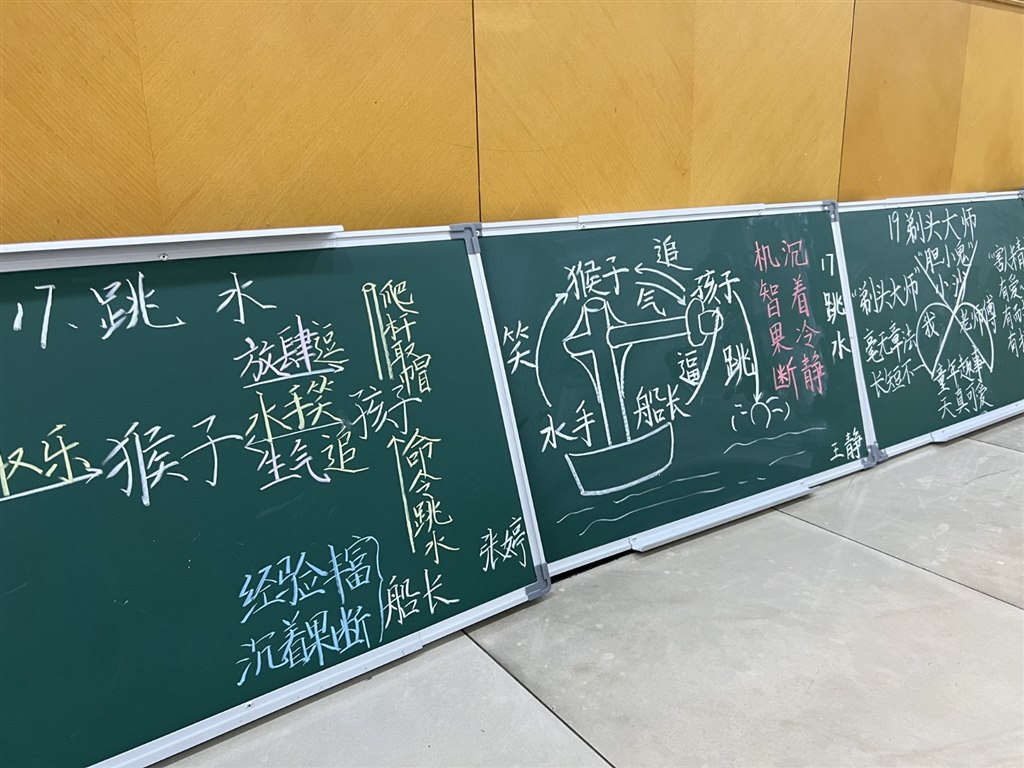 17、跳水
放肆逗
爬杆取帽
取乐
猴子
水手笑
孩子
生气追
命令跳水
经验丰富
沉着果断
船长
张婷
17跳水
沉着冷静
机智果断
追
猴子
孩子
气
笑
逼
跳
水手
船长
王静
19剃头大师
"胆小鬼"
小沙
"剃头大师"
毫无章法
我
老师傅
长短不一
童年趣事
天真可爱